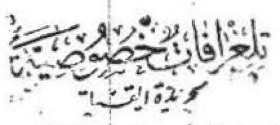 تلغرافات خصوصية
لجريدة